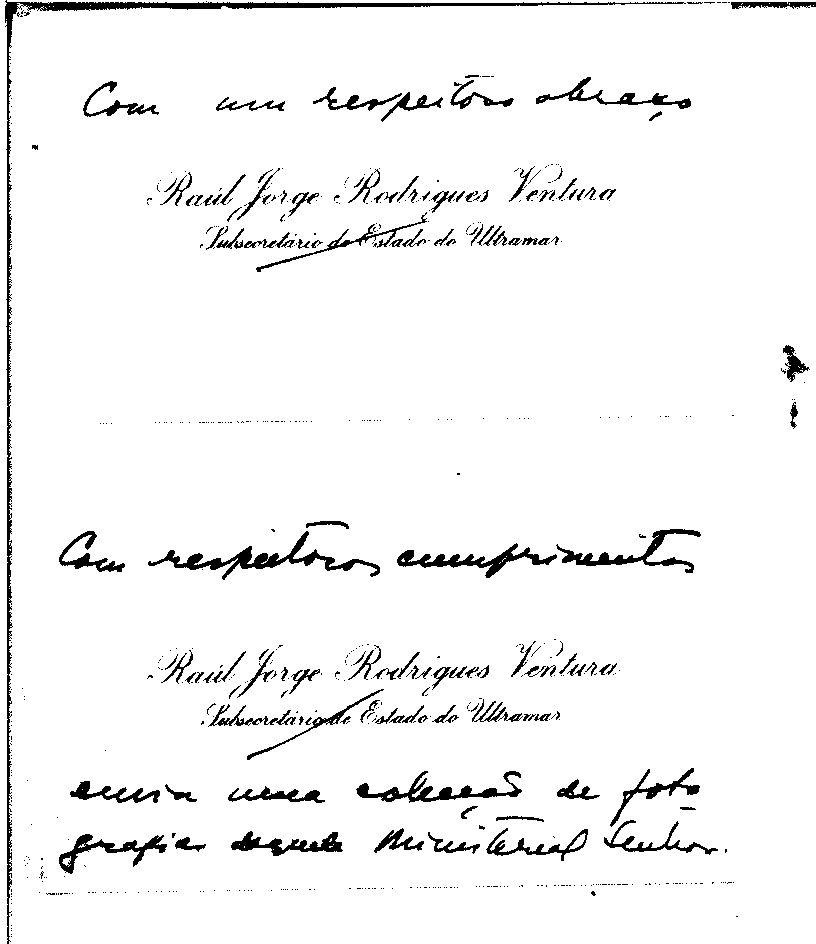 Com um respeitoso abraço
Raúl Jorge Rodrigues Ventura
Subsecretário de Estado do Ultramar
Com respeitosos cumprimentos
Raúl Jorge Rodrigues Ventura
Subsecretário de Estado do Ultramar
envia uma colecção de foto
grafias daquele Ministerial Senhor.